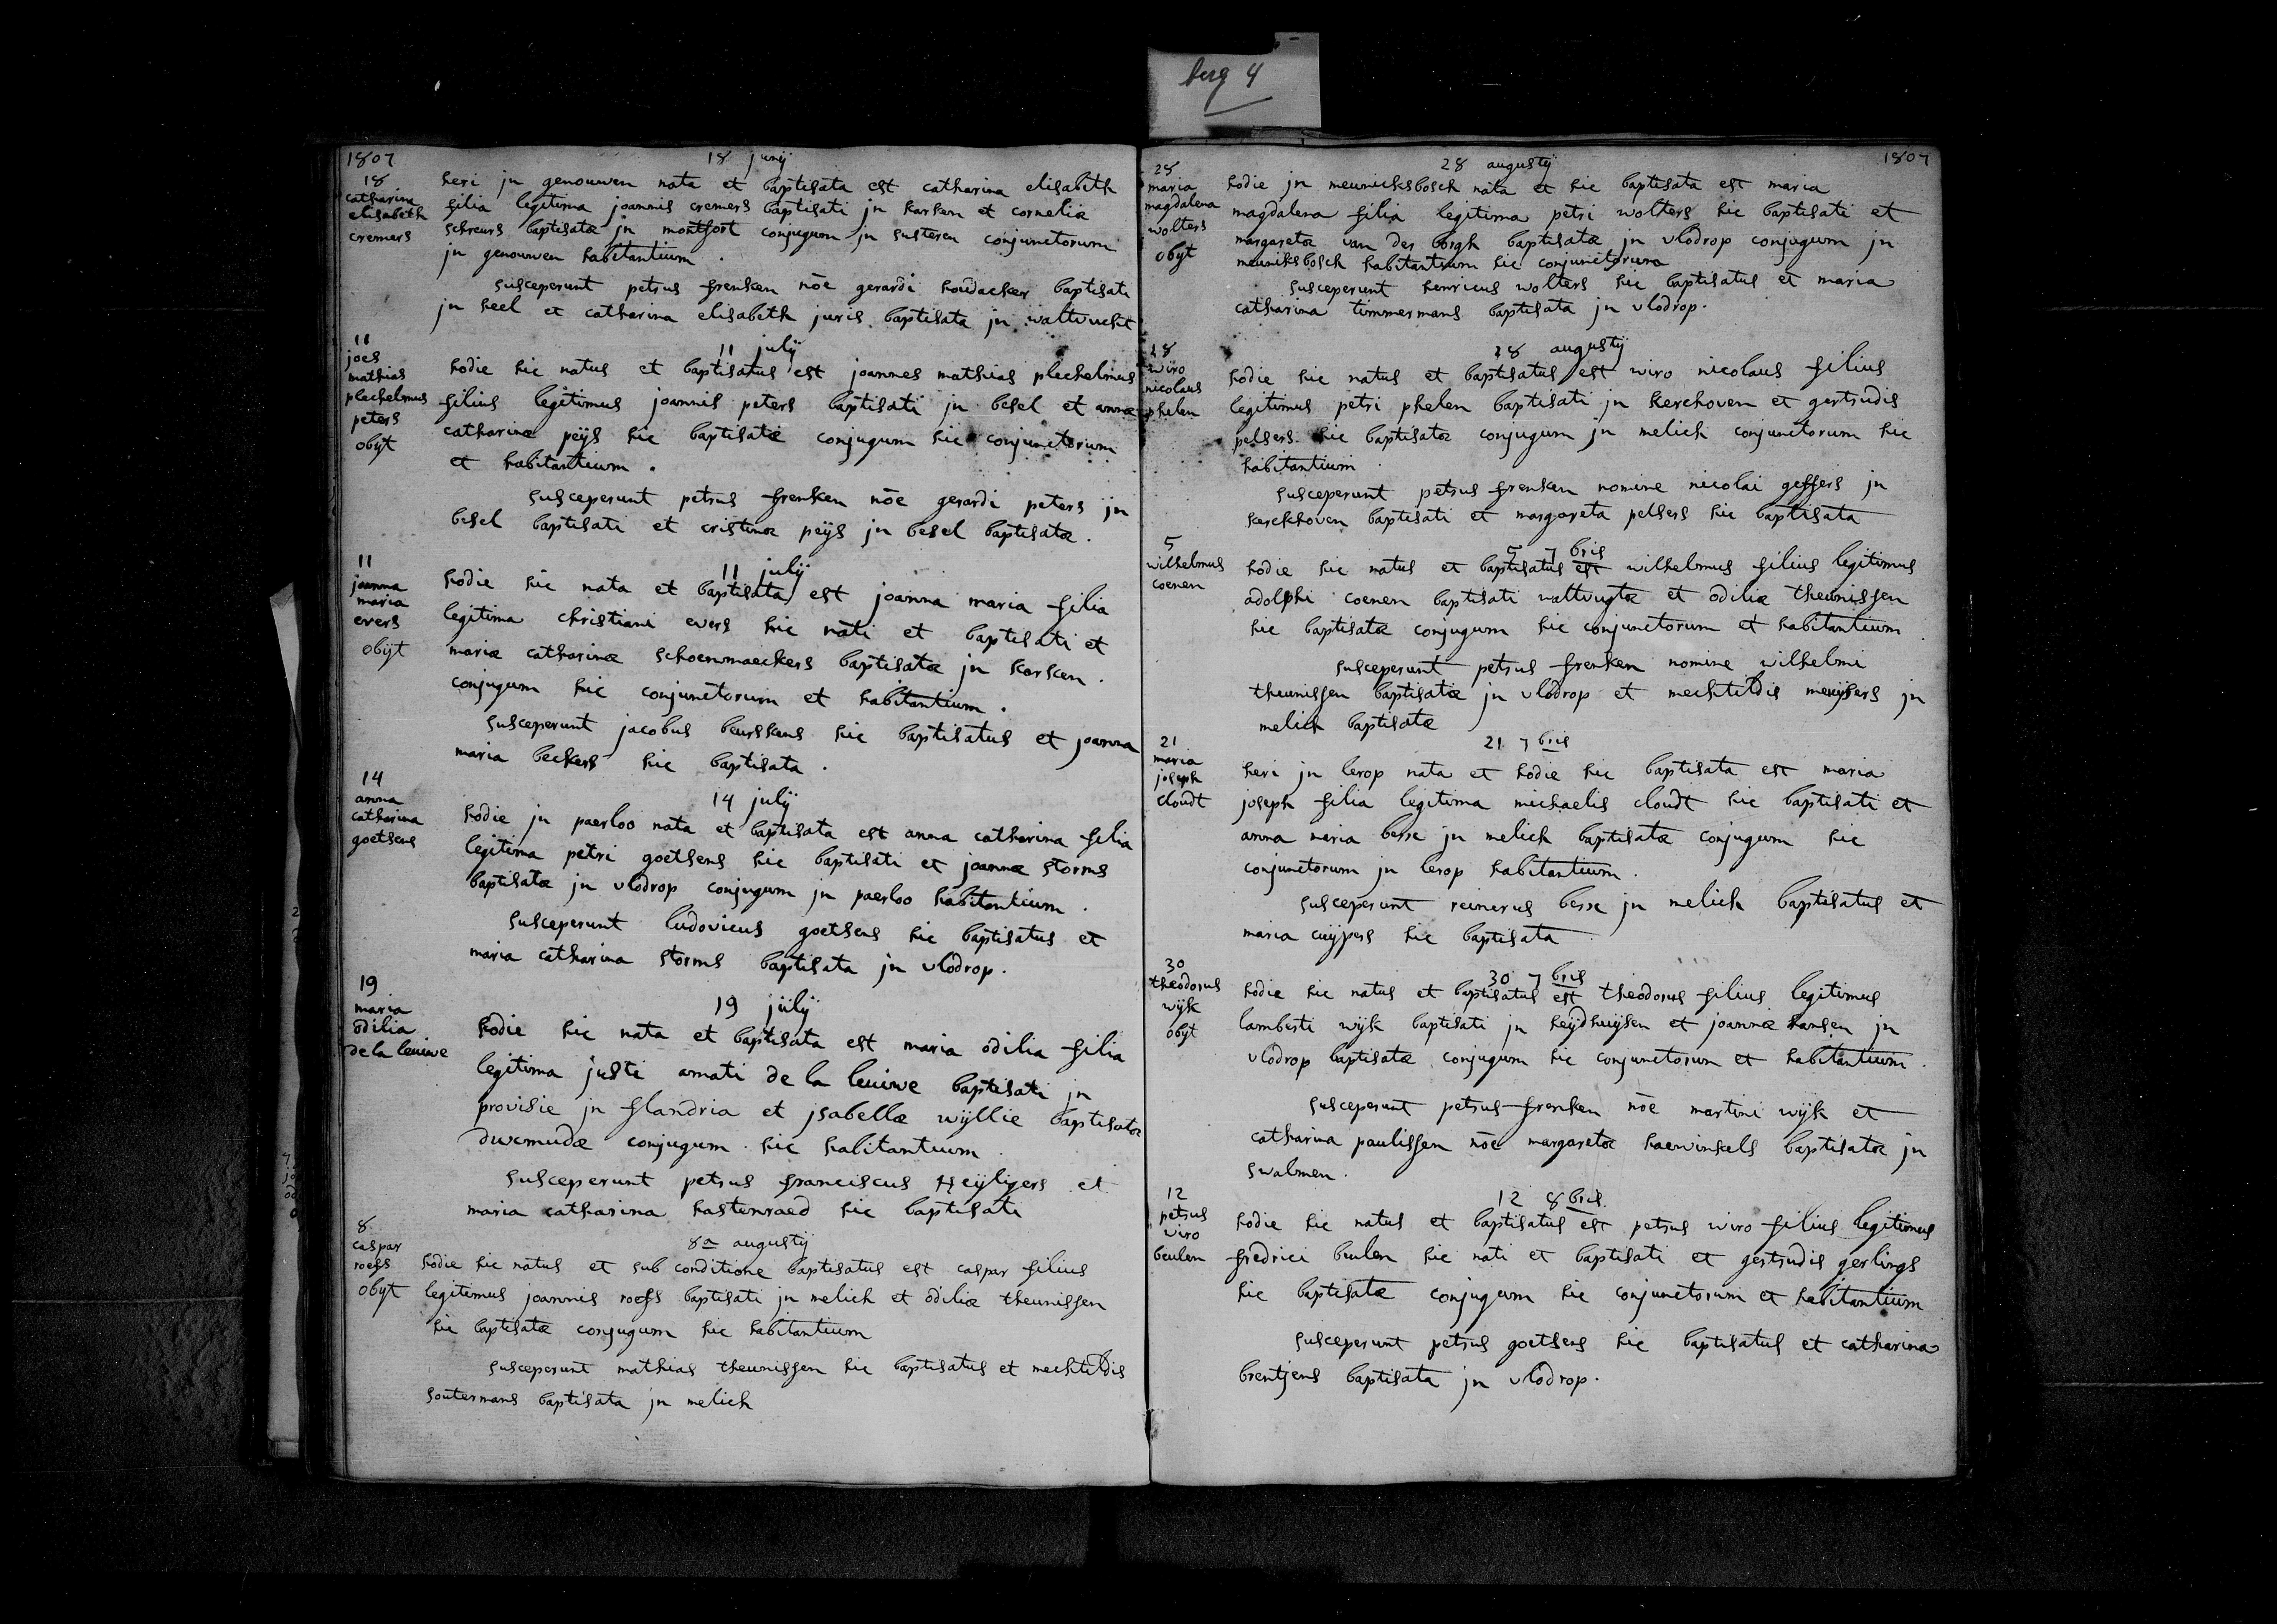 berg 4
1807
18 junij
18
catharina
elisabeth
cremers
heri jn genouwen nata et baptisata est catharina elisabeth
filia legitima joannis cremers baptisati jn karken et cornelia
schreurs baptisatæ jn montfort conjugum jn susteren conjunctorum
jn genouwen habitantium.
susceperunt petrus frenken nōe gerardi houdacker baptisati
jn heel et catharina elisabeth juris baptisata jn waltvucht
11 julij
11
joes
mathias
plechelmus
peters
obijt
hodie hic natus et baptisatus est joannes mathias plechelmus
filius legitimus joannis peters baptisati jn besel et annæ
catharinæ peijs hic baptisatæ conjugum hic conjunctorum
et habitantium.
susceperunt petrus frenken nōe gerardi peters jn
besel baptisati et cristinæ peijs jn besel baptisatæ.
11 julij
11
joanna
maria
evers
obijt
hodie hic nata et baptisata est joanna maria filia
legitima christiani evers hic nati et baptisati et
mariæ catharinæ schoenmaeckers baptisatæ jn karken.
conjugum hic conjunctorum et habitantium.
susceperunt jacobus beurskens hic baptisatus et joanna
maria beckers hic baptisata.
14 julij
14
anna
catharina
goetsens
hodie jn paerloo nata et baptisata est anna catharina filia
legitima petri goetsens hic baptisati et joannæ storms
baptisatæ jn vlodrop conjugum jn paerloo habitantium.
susceperunt ludovicus goetsens hic baptisatus et
maria catharina storms baptisata jn vlodrop.
19 julij
19
maria
odilia
de la leuiwe
hodie hic nata et baptisata est maria odilia filia
legitima justi amati de la leuiwe baptisati jn
provisie jn flandria et jsabellæ wijllie baptisatæ
dixmudæ conjugum hic habitantium.
susceperunt petrus franciscus Heijligers et
maria catharina kastenraed hic baptisati
8a augustij
8
caspar
roefs
obijt
hodie hic natus et sub conditione baptisatus est caspar filius
legitimus joannis roefs baptisati jn melick et odiliæ theunissen
hic baptisatæ conjugum hic habitantium
susceperunt mathias theunissen hic baptisatus et mechtildis
soutermans baptisata jn melick
1807
28 augustij
28
maria
magdalena
wolters
obijt
hodie jn meunicksbosch nata et hic baptisata est maria
magdalena filia legitima petri wolters hic baptisati et
margaretæ van der borgh baptisatæ jn vlodrop conjugum jn
meuniksbosch habitantium hic conjunctorum
susceperunt henricus wolters hic baptisatus et maria
catharina timmermans baptisata jn vlodrop.
28 augustij
28
wiro
nicolaus
phelen
hodie hic natus et baptisatus est wiro nicolaus filius
legitimus petri phelen baptisati jn kerchoven et gertrudis
pelsers hic baptisatæ conjugum jn melich conjunctorum hic
habitantium.
susceperunt petrus frenken nomine nicolai geffers jn
kerckhoven baptisati et margareta pelsers hic baptisata
5 7bris
5
wilhelmus
coenen
hodie hic natus et baptisatus est wilhelmus filius legitimus
adolphi coenen baptisati wattvugtæ et odiliæ theunissen
hic baptisatæ conjugum hic conjunctorum et habitantium.
susceperunt petrus frenken nomine wilhelmi
theunissen baptisatæ jn vlodrop et mechtildis meijsers jn
melich baptisatæ
21 7bris
21
maria
joseph
cloudt
heri jn lerop nata et hodie hic baptisata est maria
joseph filia legitima michaelis cloudt hic baptisati et
anna maria besse jn melick baptisatæ conjugum hic
conjunctorum jn lerop habitantium.
susceperunt reinerus besse jn melick baptisatus et
maria cuijpers hic baptisata.
30 7bris
30
theodorus
wijk
obijt
hodie hic natus et baptisatus est theodorus filius legitimus
lamberti wijk baptisati jn heijdhuijsen et joannæ hansen jn
vlodrop baptisatæ conjugum hic conjunctorum et habitantium.
susceperunt petrus frenken nōe martini wijk et
catharina paulissen nōe margaretæ haewinkels baptisatæ jn
swalmen.
12 8bris
12
petrus
wiro
beulen
hodie hic natus et baptisatus est petrus wiro filius legitimus
fredrici beulen hic nati et baptisati et gertrudis gerlings
hic baptisatæ conjugum hic conjunctorum et habitantium
susceperunt petrus goetsens hic baptisatus et catharina
brentjens baptisata jn vlodrop.